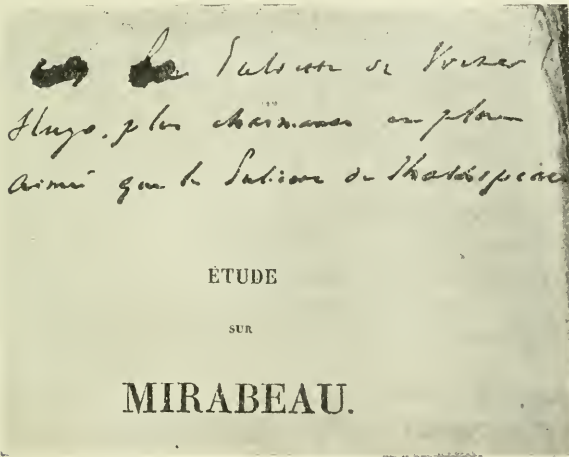 Juliette de Victor
Hugo, plus charmante et plus
aimée que la Juliette de Shakespeare
ÉTUDE
SUR
MIRABEAU.